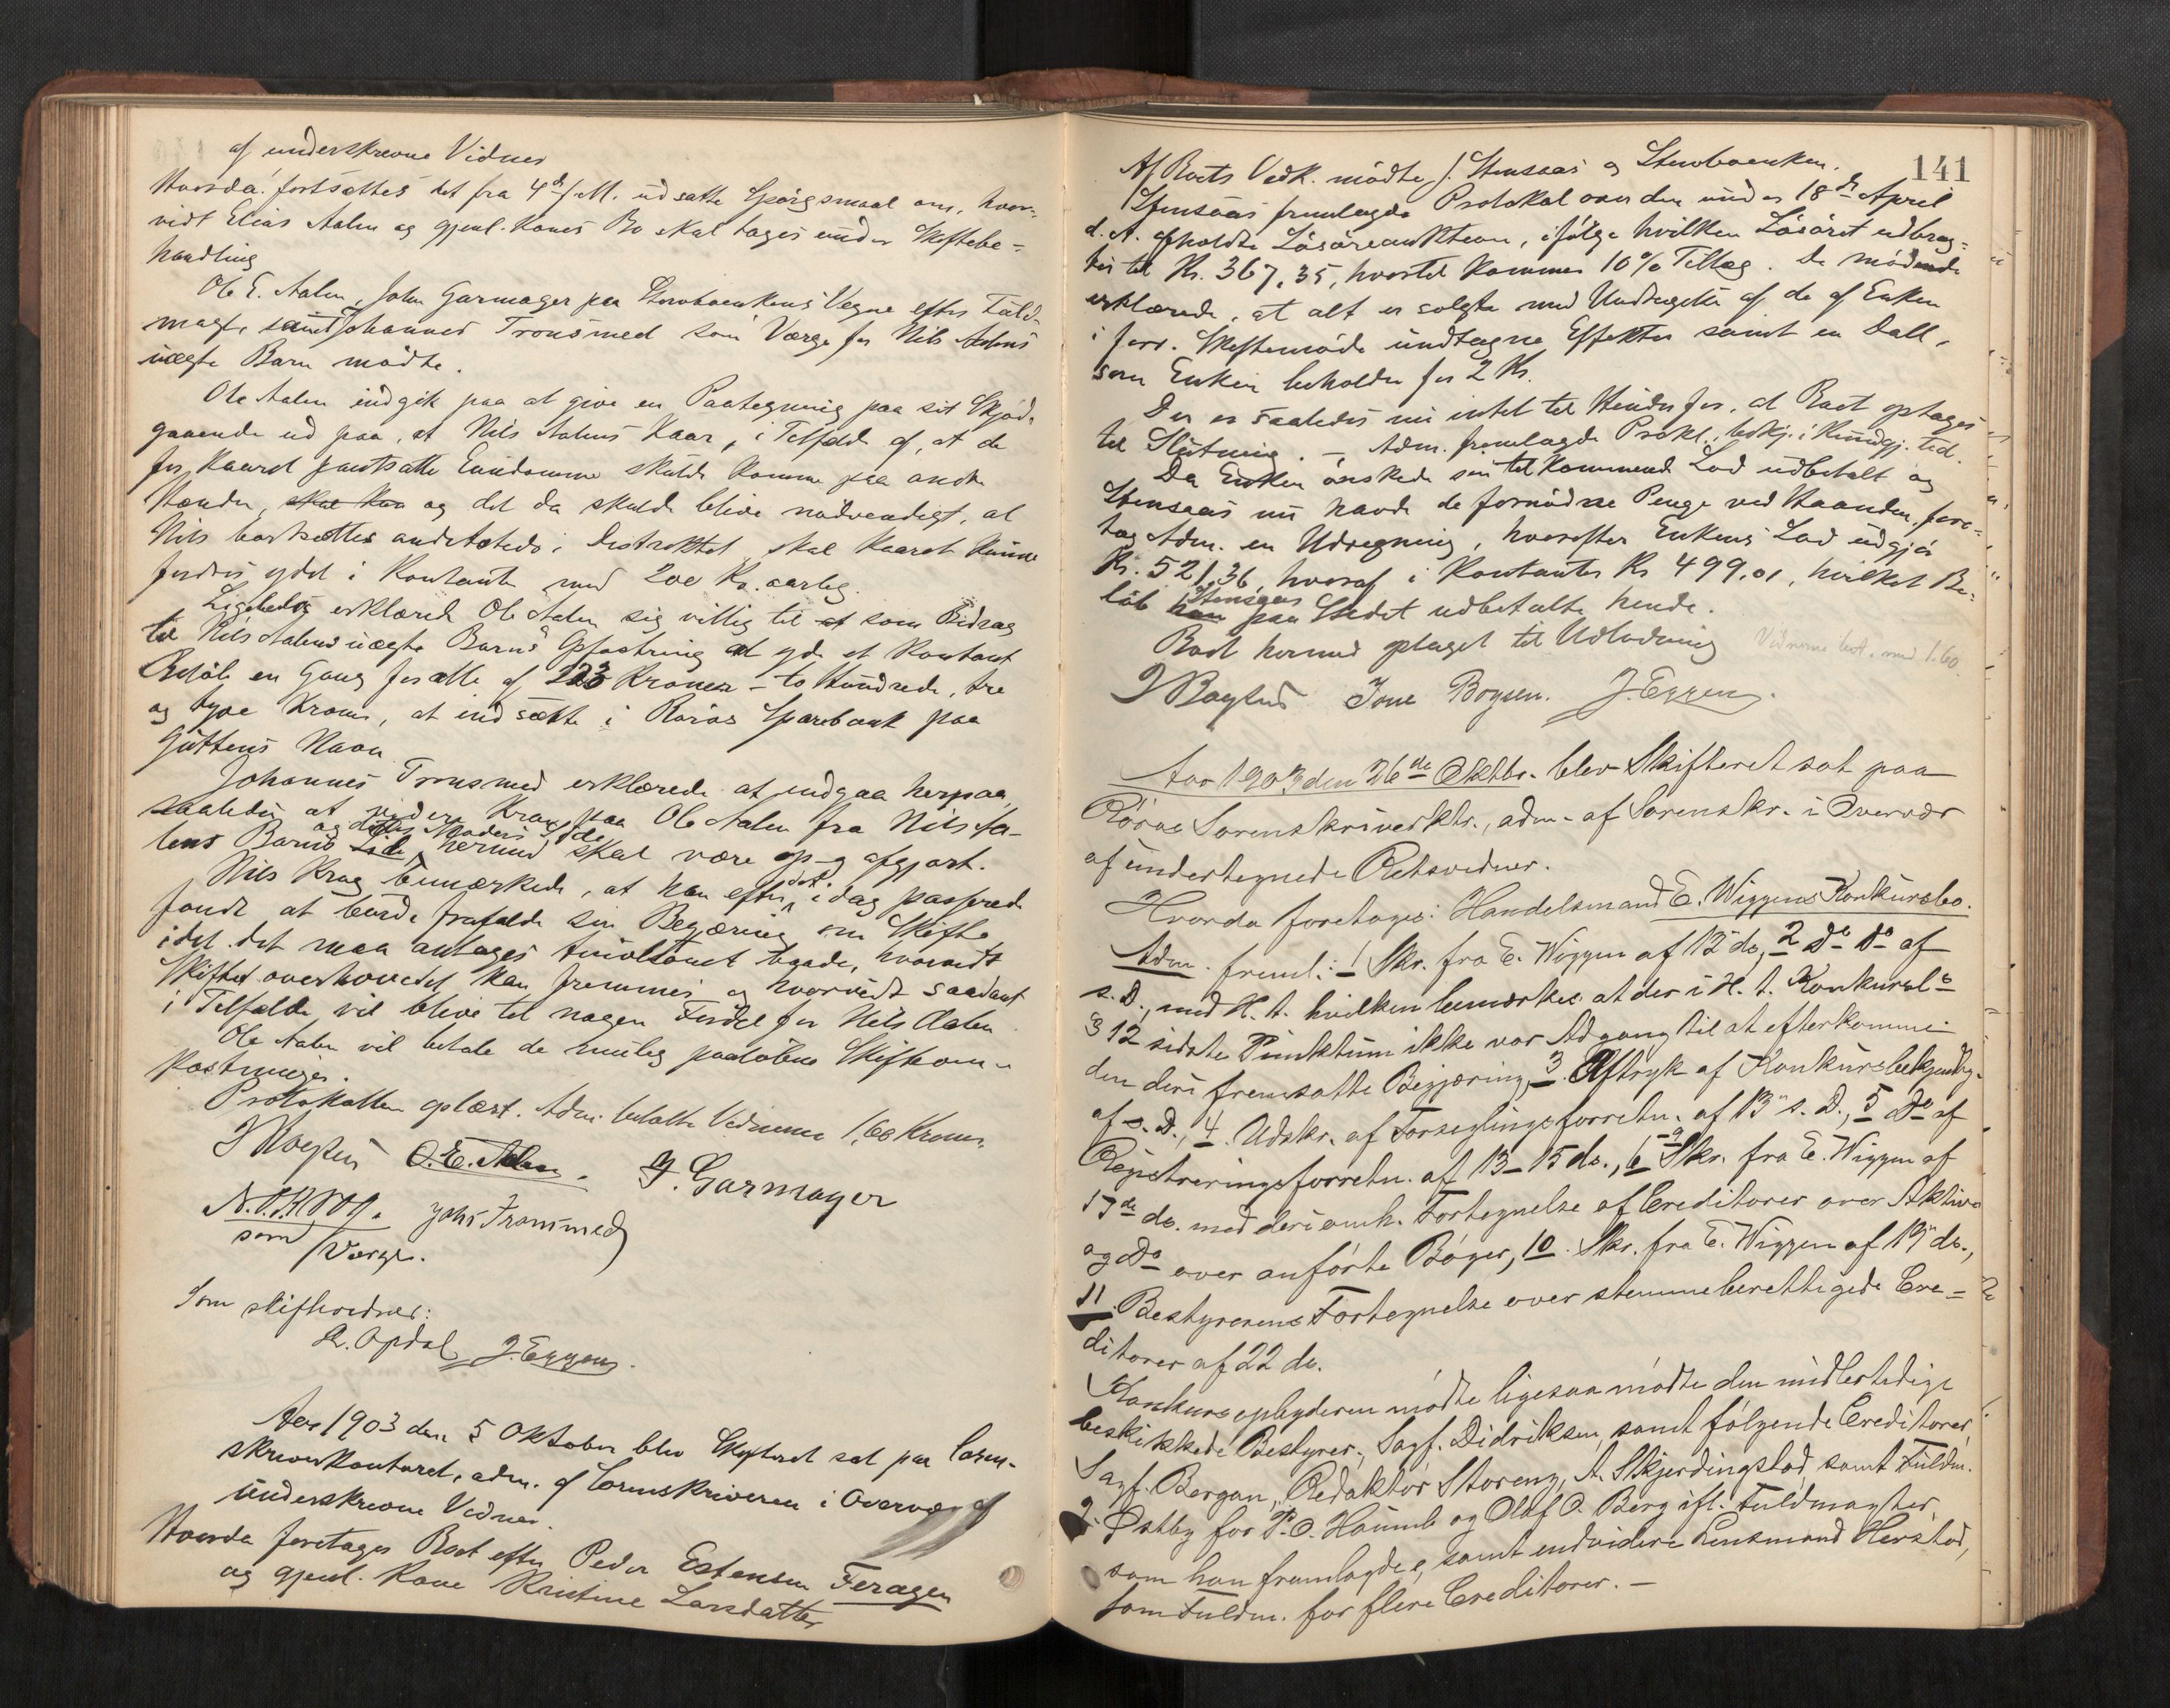 af underskrevne Vidner
Hvorda: fortsattes det fra 4de f. M. udsatte Spørgsmaal om, hvor-
vidt Elias Aalen og gjenl. Kones Bo skal tages under Skiftebe-
handling
Ole E. Aalen, John Garmager paa Stervboenkens Vegne efter Fuld-
magt, samt Johannes Tronsmed som Værge for Nils Aalens
uægte Barn mødte.
Ole Aalen indgik paa at give en Paategning paa sit Skjøde
gaaende ud paa, at Nils Aalens Kaar, i Tilfælde af, at de
for Kaaret pantsatte Eiendomme skulde komme paa andre
Hænder, skal kaa og det da skulde blive nødvendigt, at
Nils bortsættes andetsteds i Distriktet, skal Kaaret kunne
fordres ydet i Kontanter med 200 Kr. aarlig.
Ligeledes erklærede Ole Aalen sig villig til at som Bidrag
til Nils Aalens uægte Barns Opfostring at yde et Kontant
Beløb en Gang for alle af 223 Kroner - to Hundrede, tre
og tyve Kroner, at indsætte i Røros Sparebank paa
Guttens Navn
Johannes Tronsmed erklærede at indgaa herpaa,
saaledes at videre Krav paa Ole Aalen fra Nils Aa-
og dettes Moders Side
lens Barns Side hermed skal være op- og afgjort.
Nils Krog bemærkede, at han efter det i dag passerede
fandt at burde frafalde sin Begjæring om Skifte
idet det maa antages tvivlsomt baade, hvorvidt
Skiftet overhovedet kan fremmes og hvorvidt saadant
i Tilfælde vil blive til nogen Fordel for Nils Aalen
Ole Aalen vil betale de mulig paaløbne Skifteom-
kostninger.
Protokollen oplæst. Adm. betalte Vidnerne 1,60 Kroner.
O. E. Aalen. J. Garmager
N. O. Krog. Johs Tronsmed
som Værge.
Som skiftevidner:
R. Opdal J. Eggen.
Aar 1903 den 5 Oktober blev Skifteret sat paa Soren-
skriverkontoret, adm. af Sorenskriveren i Overvær af
underskrevne Vidner.
Hvorda foretages Boet efter Peder Estensen Feragen
og gjenl. Kone Kristine Larsdatter
141
Af Boets Vedk. mødte J. Stensaas og Stervboenken.
Stensaas fremlagde Protokol over den under 18de April
d. A. afholdte Løsøreauktion, ifølge hvilken Løsøret udbrag-
tes til Kr. 367,35, hvortil kommer 10% Tillæg. De mødende
erklærede, at alt er solgt med Undtagelse af de af Enken
i forr. Skiftemøde undtagne Effekter samt en Dall,
som Enken beholder for 2 Kr.
Der er saaledes nu intet til Hinder for, at Boet optages
til Slutning. - Adm. fremlagde Prokl. bekj. i Kundgj. tid.
Da Enken ønskede sin tilkommende Lod udbetalt og
Stensaas nu havde de fornødne Penge ved Haanden, fore-
tog Adm. en Udregning, hvorefter Enkens Lod udgjør
Kr. 521,36, hvoraf i Kontanter Kr 499,01, hvilket Be-
Stensaas
løb han paa Stedet udbetalte hende.
Boet hermed optaget til Udlodning Vidnerne bet. med 1.60
Jone Boysen. J. Eggen.
Aar 1903 den 26de Oktbr. blev Skifteret sat paa
Røros Sorenskriverktr., adm. af Sorenskr. i Overvær
af undertegnede Retsvidner.
Hvorda foretoges: Handelsmand E. Wiggens Konkursbo.
Adm. freml.: 1 Skr. fra E. Wiggen af 12 ds, 2 Do Do af
s. D., med H. t. hvilken bemærkes at der i H. t. Konkursl.s
§ 12 sidste Punktum ikke var Adgang til at efterkomme
den deri fremsatte Begjæring, 3. Aftryk af Konkursbekjendtg.
af s. D., 4. Udskr. af Forseglingsforretn. af 13 s. D., 5 Do af
Registreringsforretn. af 13-15 ds., 6-9 Skr. fra E. Wiggen af
17de ds. med deri omh. Fortegnelse af Creditorer over Aktiva
og Do over anførte Bøger, 10. Skr. fra E. Wiggen af 19 ds.,
11. Bestyrerens Fortegnelse over stemmeberettigede Cre-
ditorer af 22 ds.
Konkursopbyderen mødte ligesaa mødte den midlertidige
beskikkede Bestyrer, Sagf. Didriksen, samt følgende Creditorer,
Sagf. Bergan, Redaktør Storeng, A. Skjerdingstad samt Fuldm.
J. Østby for P. O. Haumb og Olaf O. Berg ifl. Fuldmagter
som han fremlagde, samt endvidere Lensmand Herstad,
som Fuldm. for flere Creditorer. -